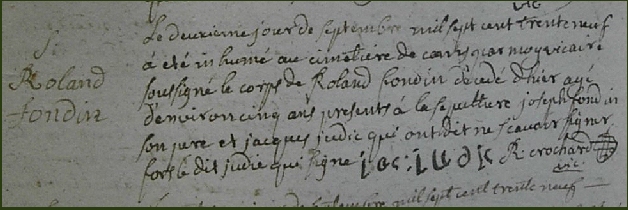 vic
S
Roland
fondin
Le deuxieme jour de septembre mil sept cent trente neuf
à été inhumé au cimetiere de ceans par moy vicaire
soussigné le corps de Roland fondin decedé d'hier agé
d'environ cinq ans presents à la sepulture joseph fondin
son pere et jacques judic qui ont dit ne scavoir signer
fors le dit judic qui signe jac: judic R: crochard
vic:
mil sept cent trente neuf